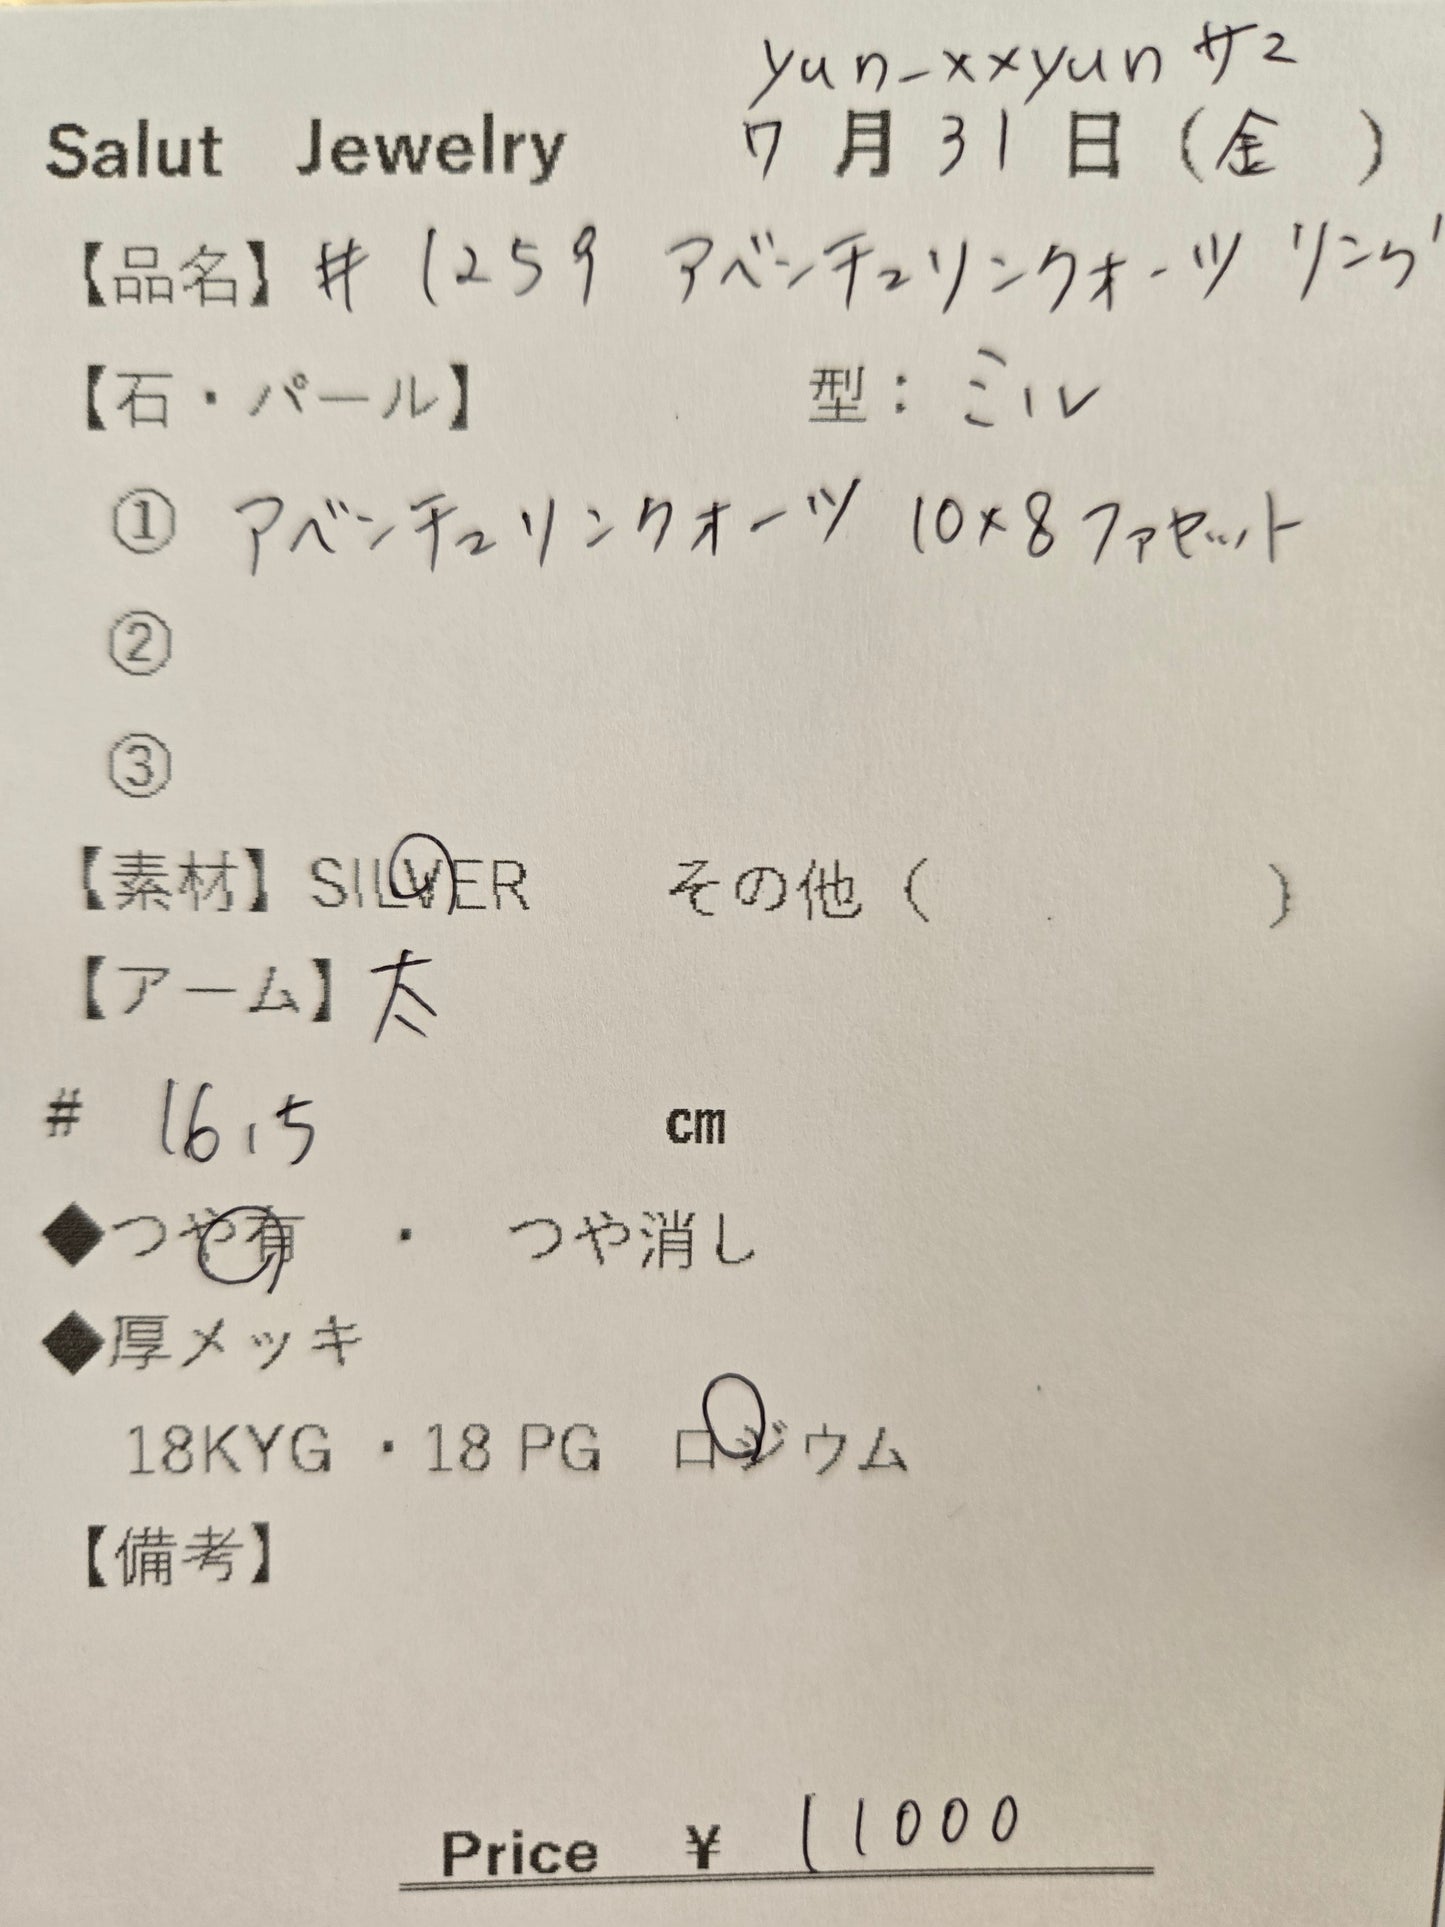 yun_xxyun サマ
Salut Jewelry 7月31日（金 ）
【品名】# 1259 アベンチュリンクォーツ リング
【石・パール】 型：ミル
① アベンチュリンクォーツ 10×8 ファセット
②
③
【素材】SILVER その他（ ）
【アーム】太
# 16.5 cm
◆つや有 ・ つや消し
◆厚メッキ
18KYG ・18 PG ロジウム
【備考】
Price ¥ 11000